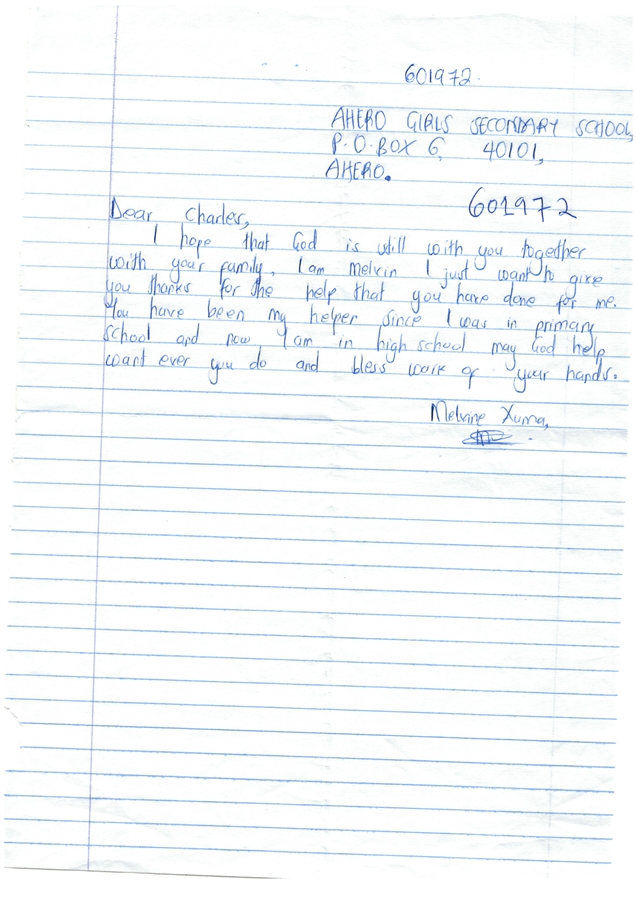 601972.
AHERO GIRLS SECONDARY SCHOOL,
P.O.BOX 6, 40101,
AHERO.
601972
Dear Charles,
I hope that God is still with you together
with your family. I am Melvin I just want to give
you thanks for the help that you have done for me.
You have been my helper since I was in primary
school and now I am in high school may God help
want ever you do and bless work of your hands.
Melvine Xuma,